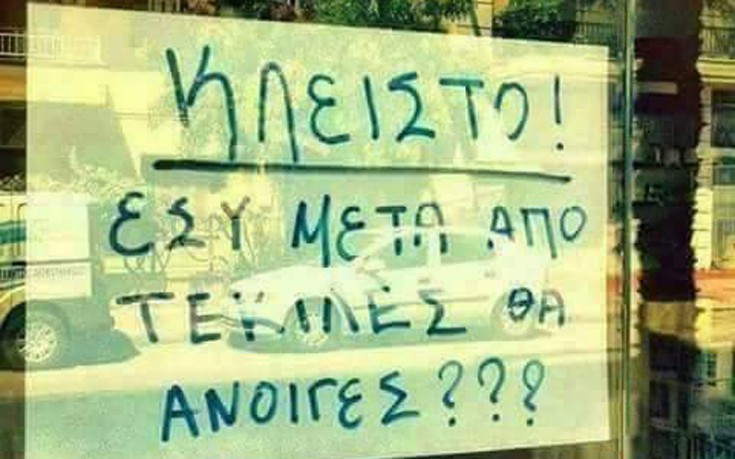 ΚΛΕΙΣΤΟ!
ΕΣΥ ΜΕΤΑ ΑΠΟ
ΤΕΚΙΛΕΣ ΘΑ
ΑΝΟΙΓΕΣ???